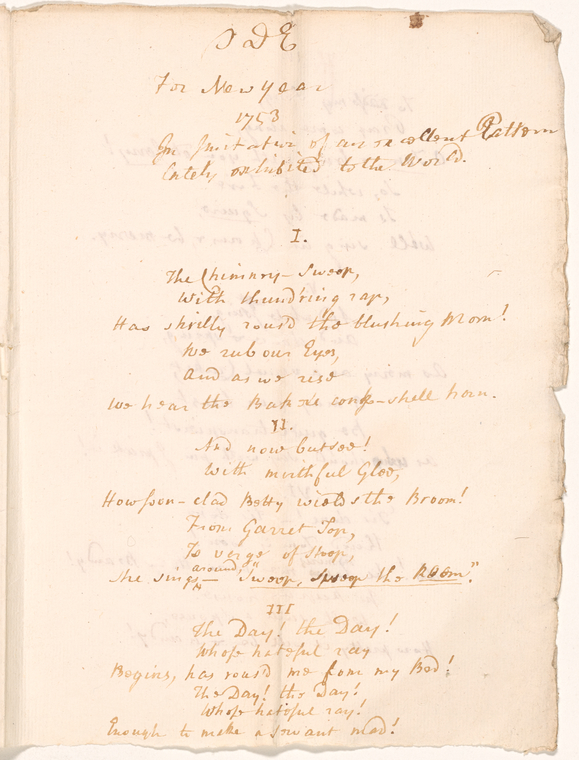 ODE
For New year
1753
In Imitation of an excellent Pattern
lately exhibited to the World.
I.
The Chimney-Sweep,
With thund'ring rap,
Has shrilly rous'd the blushing Morn!
We rub our Eyes,
And as we rise
We hear the Baker's conk-shell horn.
II.
And now but see!
With mirthful Glee,
How soon-clad Betty wields the Broom!
From Garret Top,
To verge of Stoop,
She sings around, — "Sweep, sweep the Room".
III
The Day! the Day!
Whose hateful ray
Begins, has rous'd me from my Bed!
The Day! the Day!
Whose hateful ray!
Enough to make a servant mad!